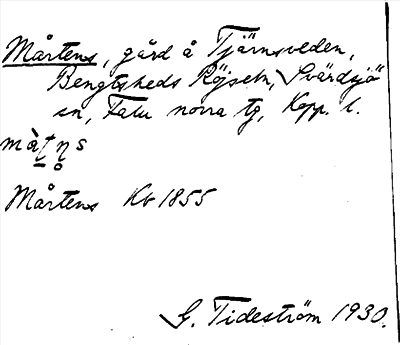 Mårtens, gård å Tjärnsveden,
Bengtsheds Röjseln, Svärdsjö
sn, Falu norra tg, Kopp. l.
Mårtens Kb 1855
G. Tideström 1930.